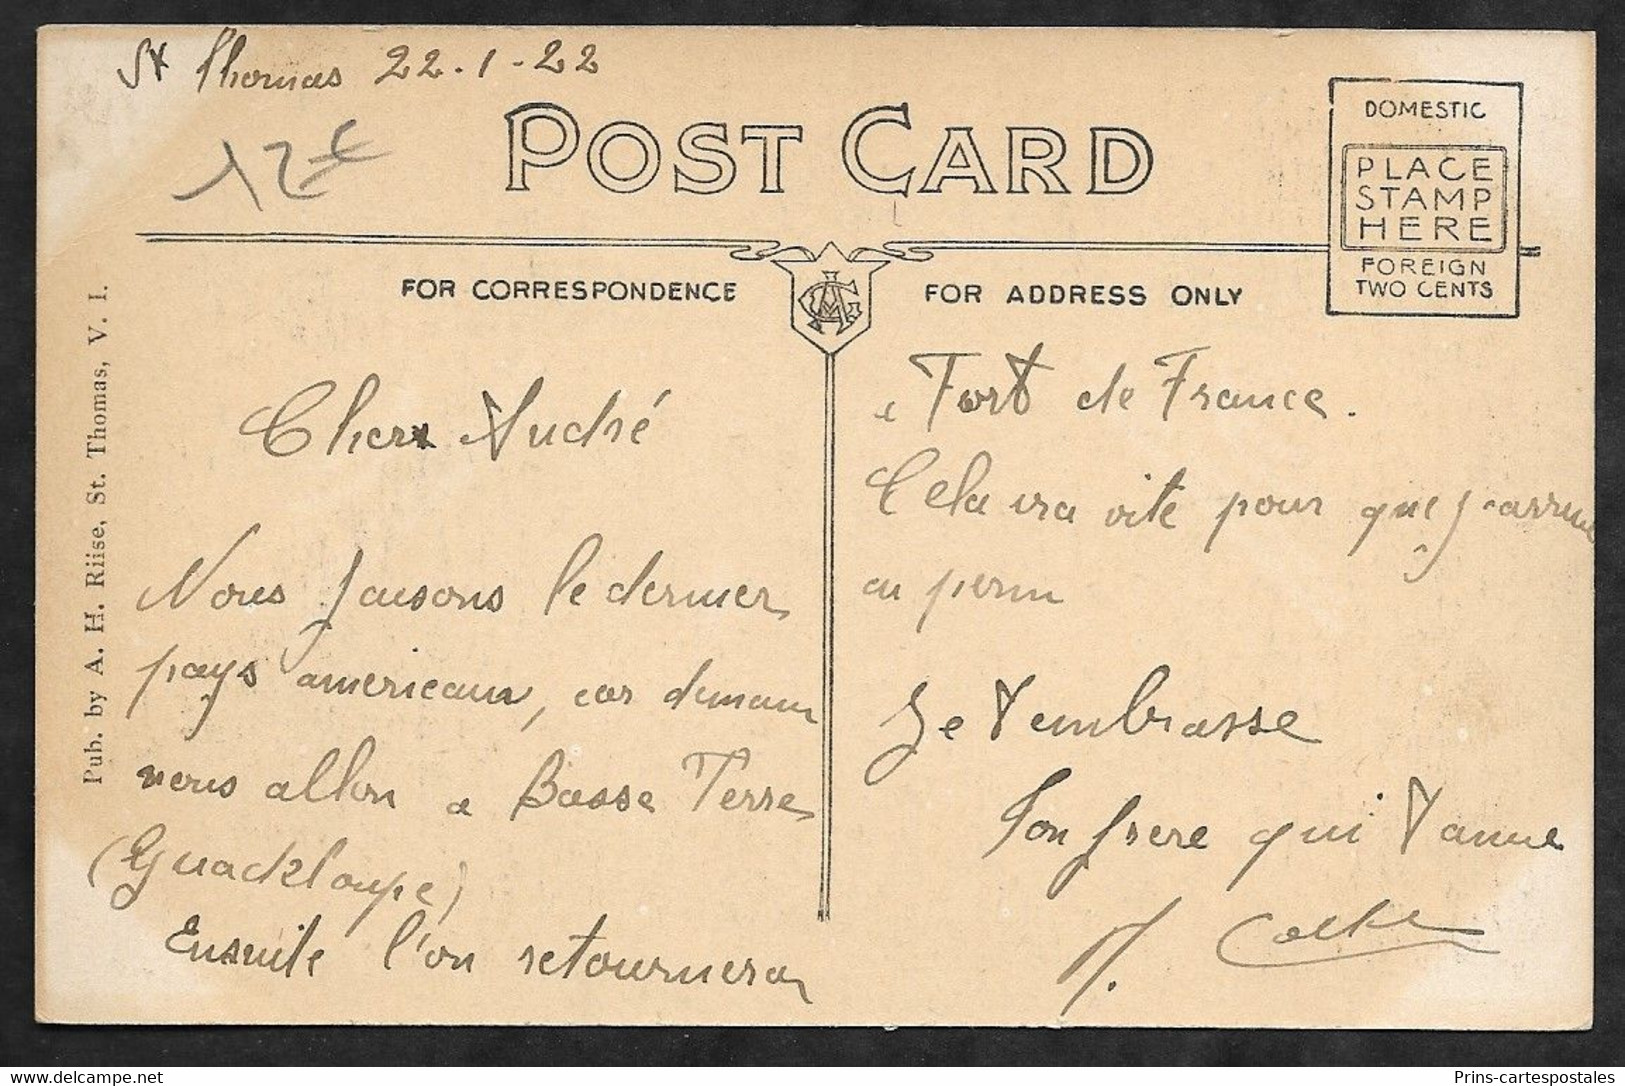 St Thomas 22-1-22
12€
POST CARD
DOMESTIC
PLACE
STAMP
HERE
FOREIGN
TWO CENTS
FOR CORRESPONDENCE
FOR ADDRESS ONLY
Pub. by A. H. Riise, St. Thomas, V. I.
Cher André
Nous faisons le dernier
pays americain, car demain
nous allon a Basse Terre
(Guadeloupe)
Ensuite l'on retournera
a Fort de France.
Cela ira vite pour que j'arrive
en perm
Je t'embrasse
Ton frere qui t'aime
Delcampe.net
Prins-cartespostales